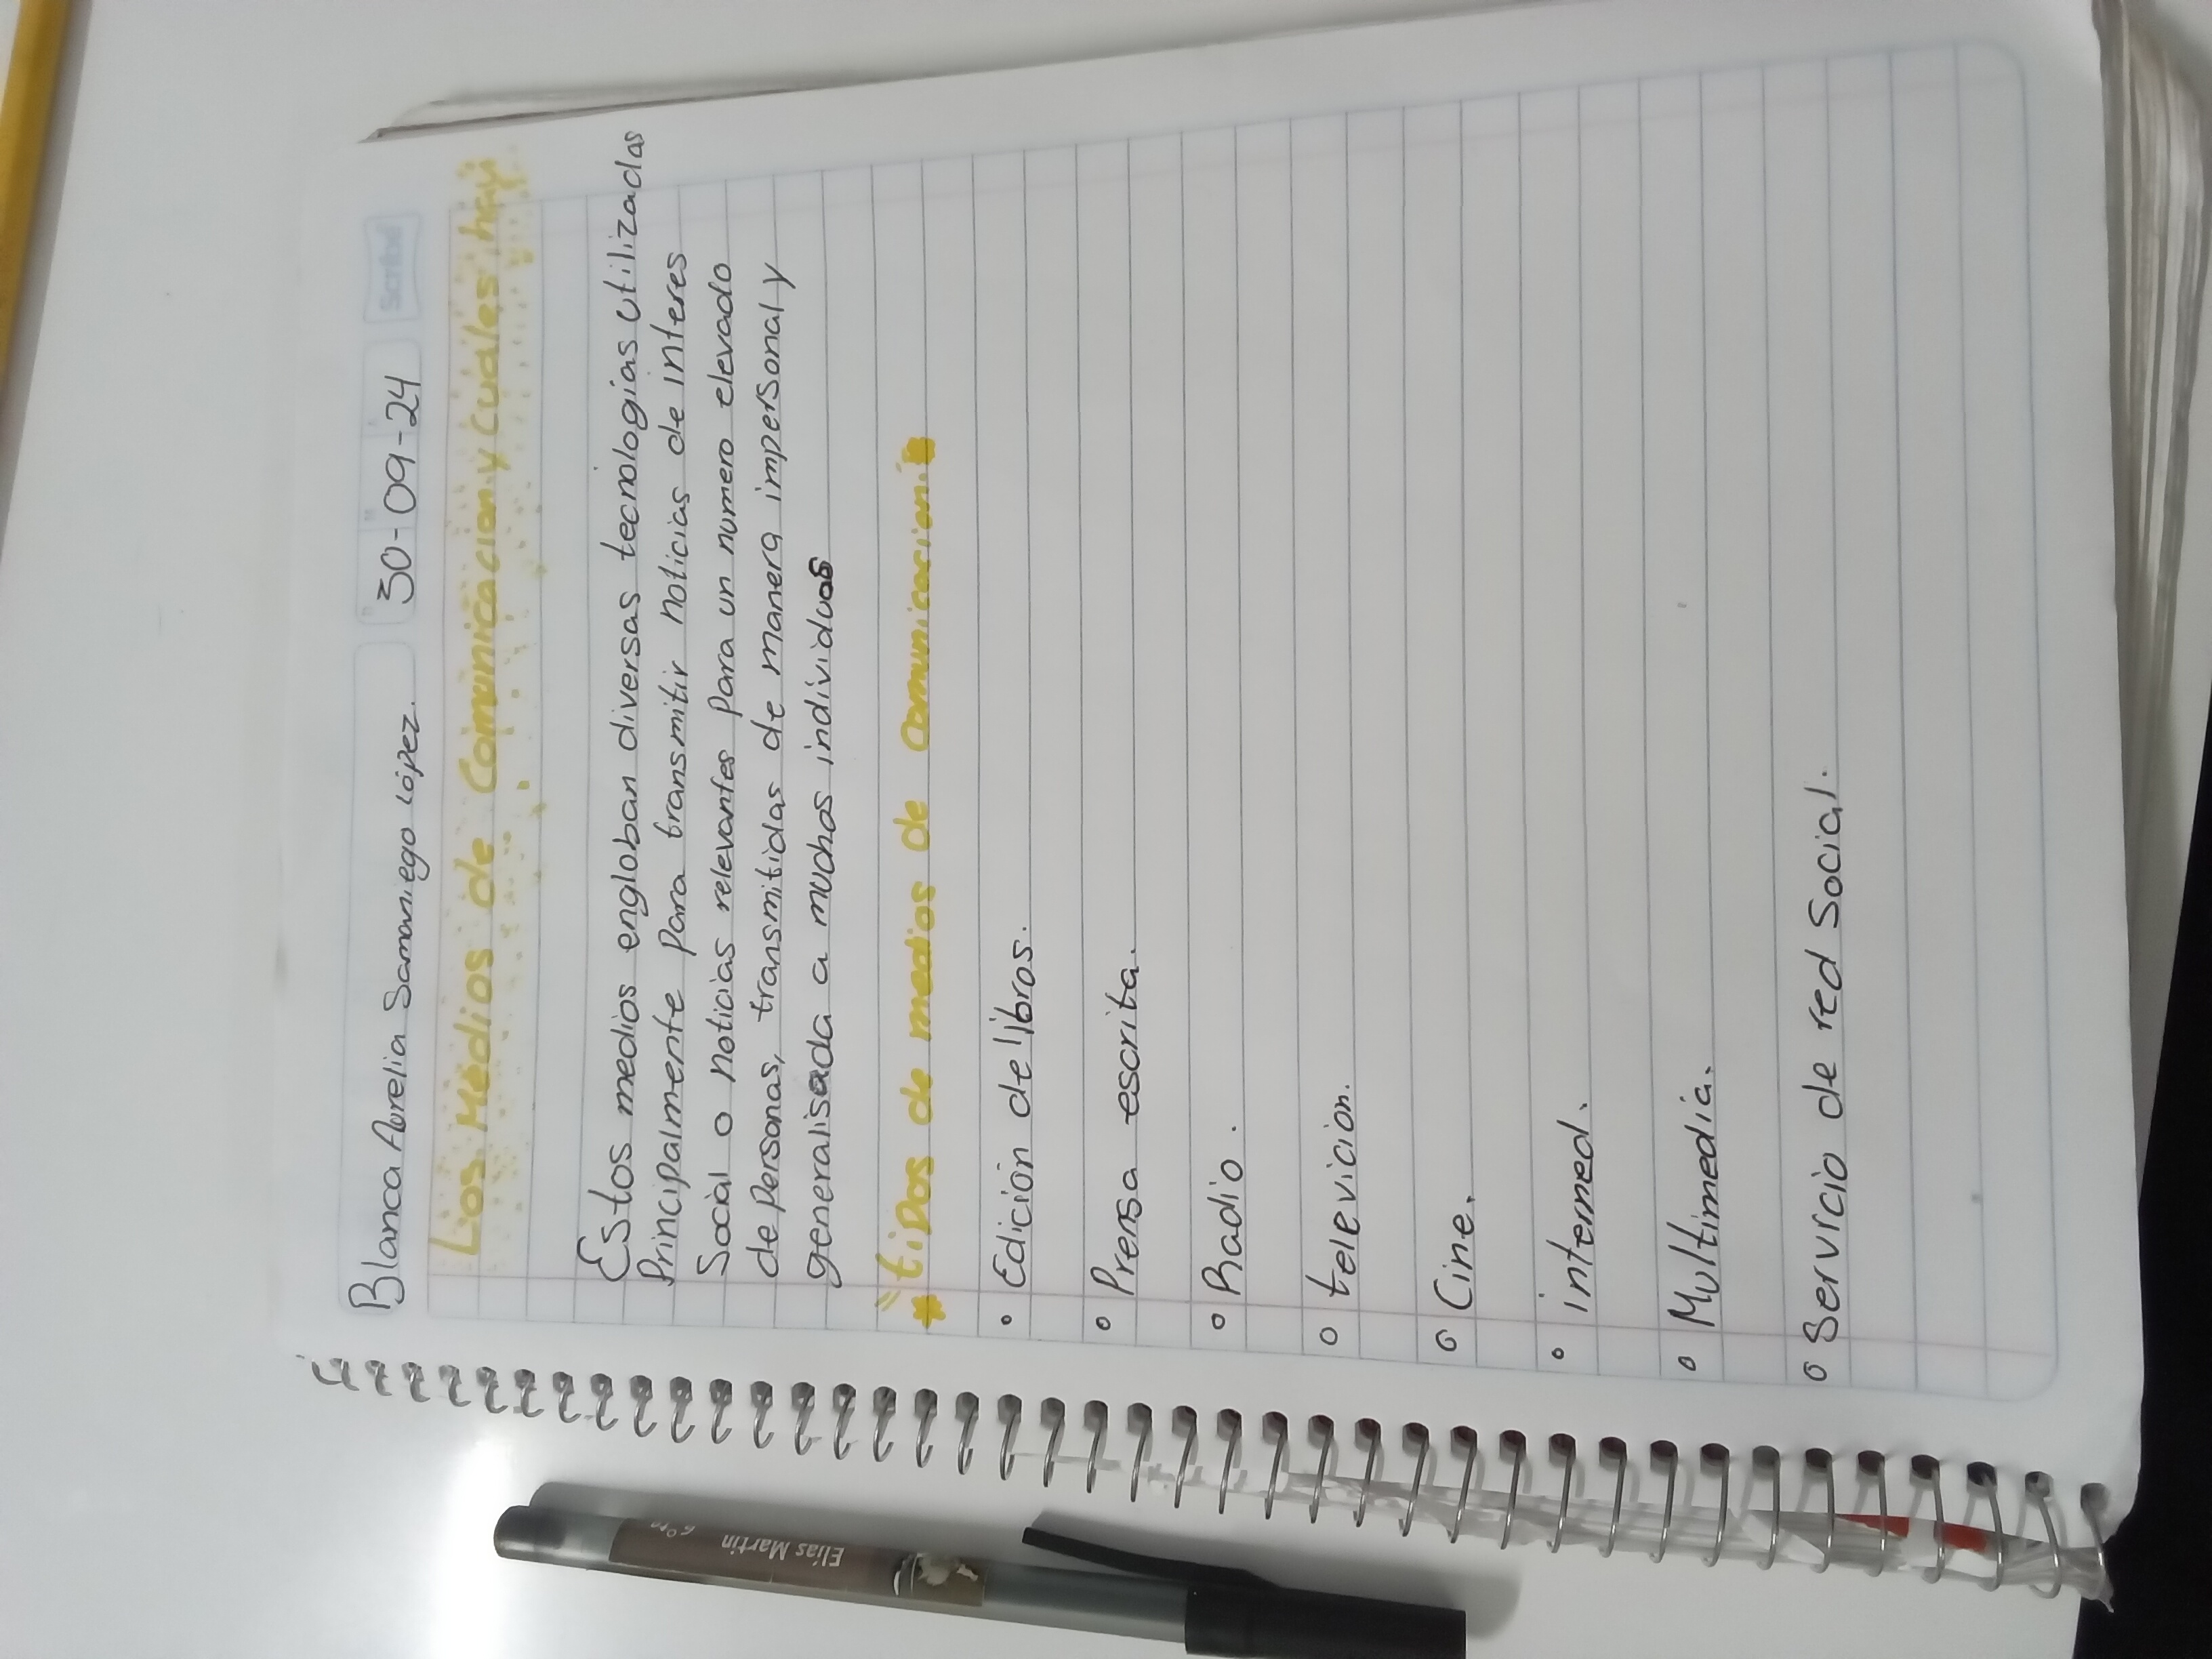 Blanca Aurelia Samaniego López. 30-09-24 Scribe
Los Medios de Comunicacion y Cuales hay
Estos medios engloban diversas tecnologias utilizadas
Principalmente para transmitir noticias de interes
Social o noticias relevantes para un numero elevado
de personas, transmitidas de manera impersonal y
generalisada a muchos individuos
tipos de medios de comunicacion:
° Edicion de libros.
° Prensa escrita.
° Radio.
° televicion.
° Cine.
° interned.
° Multimedia.
° Servicio de red Social.
Elías Martin
6°